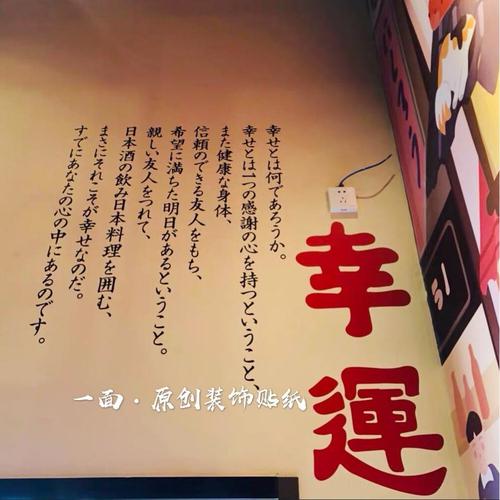 幸運
幸せとは何であろうか。
幸せとは一つの感謝の心を持つということ、
また健康な身体、
信頼のできる友人をもち、
希望に満ちた明日があるということ。
親しい友人をつれて、
日本酒の飲み日本料理を囲む、
まさにそれこそが幸せなのだ。
すでにあなたの心の中にあるのです。
一面·原创装饰贴纸